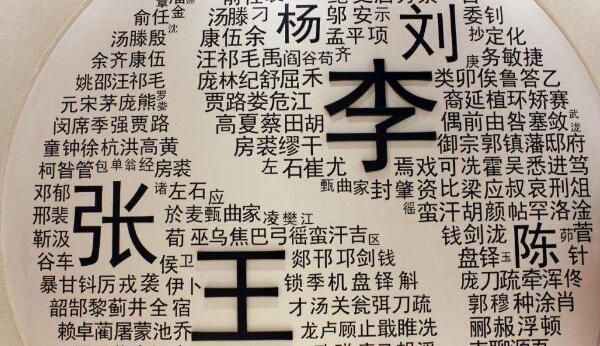 俞任金 沈 汤滕刁 杨 邬安示 刘 委钊
汤滕殷 康伍余 孟平项 抄定化
余齐康伍 汪祁毛禹阎谷苟 齐 庚 务敏捷
姚邵汪祁毛 庞林纪舒屈禾 李 类卯俟鲁答乙
元宋茅庞熊 罗娄 贾路娄危江 裔延植环矫赛
闵席季强贾路 高夏蔡田胡 偶前由昝塞敛 武泷
童钟徐杭洪高黄 房裘缪干 御宗郭镇藩邸府
柯昝管 包单翁经 房裘 左 石崔尤 焉戏可冼霍吴悉进笃
邓郁 张 诸 左石 应 甄曲家 封肇资比梁应叔哀刑俎
邢裴 於麦甄曲家 凌樊江 徭 蛮汗胡颜帖罕洛淦
靳汲 荀巫乌焦巴弓徭蛮汗吉 区 钱剑泷 陈 茆 菅
谷车 侯 卫 王 郯邗邛剑钱 盘铎 玉 针
暴甘钭厉戎袭 伊卜 锁季机盘铎斛 庞刀疏牵浑佟
韶郜黎蓟井全宿 才汤关瓮弭刀疏 郭穆种涂肖
赖卓蔺屠蒙池乔 龙卢顾止戢睢冼 郦郝浮顿